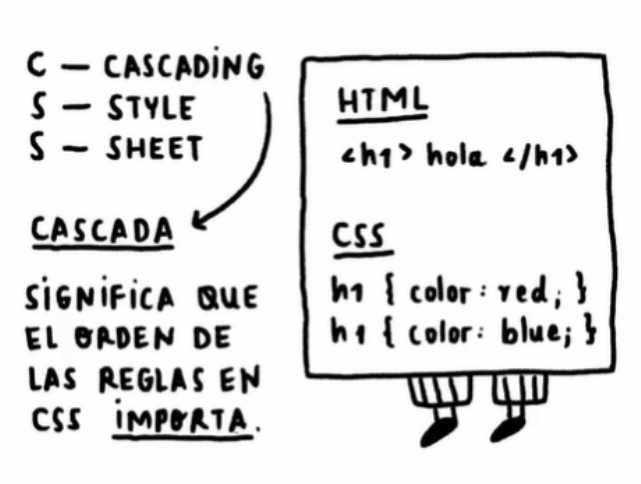 C – CASCADING
S – STYLE
S – SHEET
CASCADA
SIGNIFICA QUE
EL ORDEN DE
LAS REGLAS EN
CSS IMPORTA.
HTML
<h1> hola </h1>
CSS
h1 { color: red; }
h1 { color: blue; }